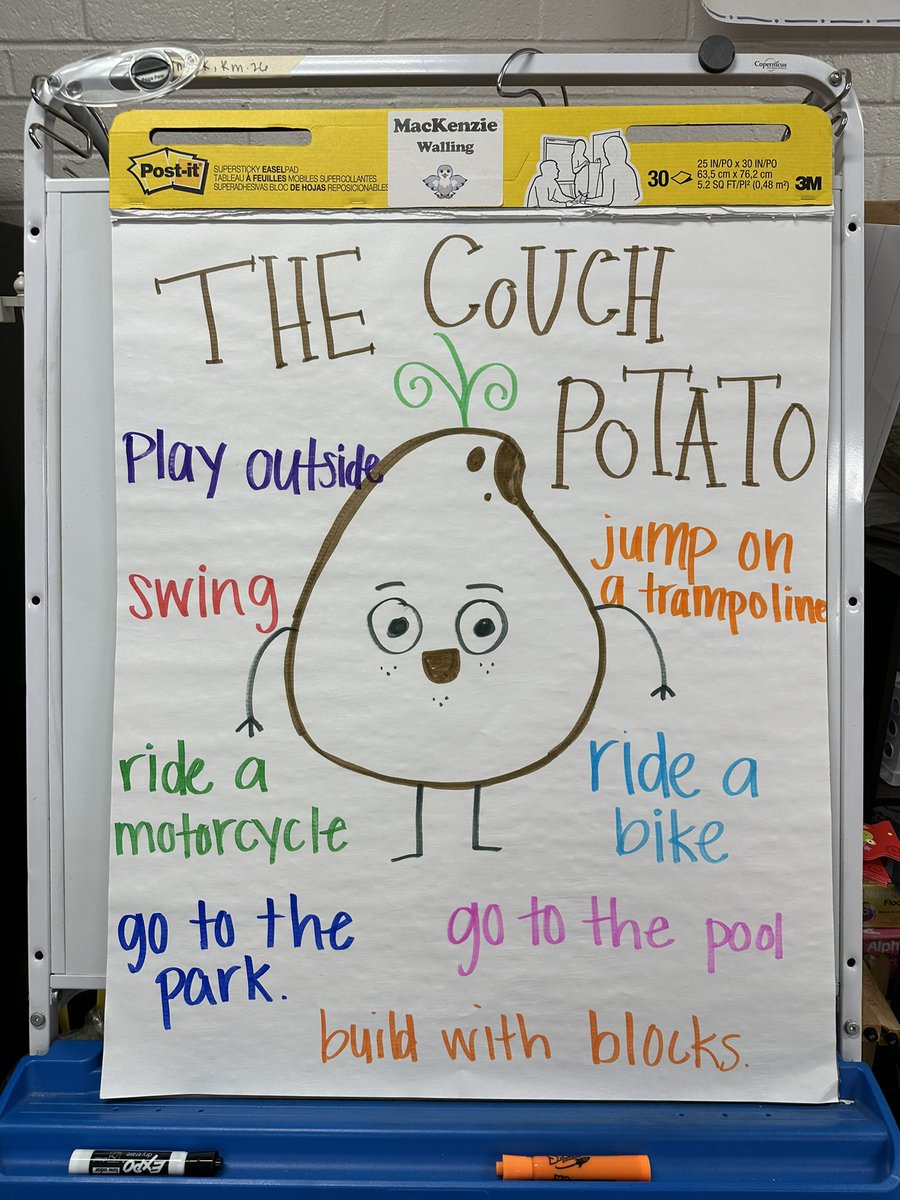 k, Rm. 26
Copernicus
Post-it
SUPERSTICKY EASEL PAD
TABLEAU À FEUILLES MOBILES SUPERCOLLANTES
SUPERADHESIVAS BLOC DE HOJAS REPOSICIONABLES
MacKenzie
Walling
30
25 IN/PO x 30 IN/PO
63,5 cm x 76,2 cm
5.2 SQ FT/PI² (0,48 m²)
3M
THE COUCH
POTATO
Play outside
jump on
a trampoline
swing
ride a
motorcycle
ride a
bike
go to the
park.
go to the pool
build with blocks.
EXPO
dry erase
low odor